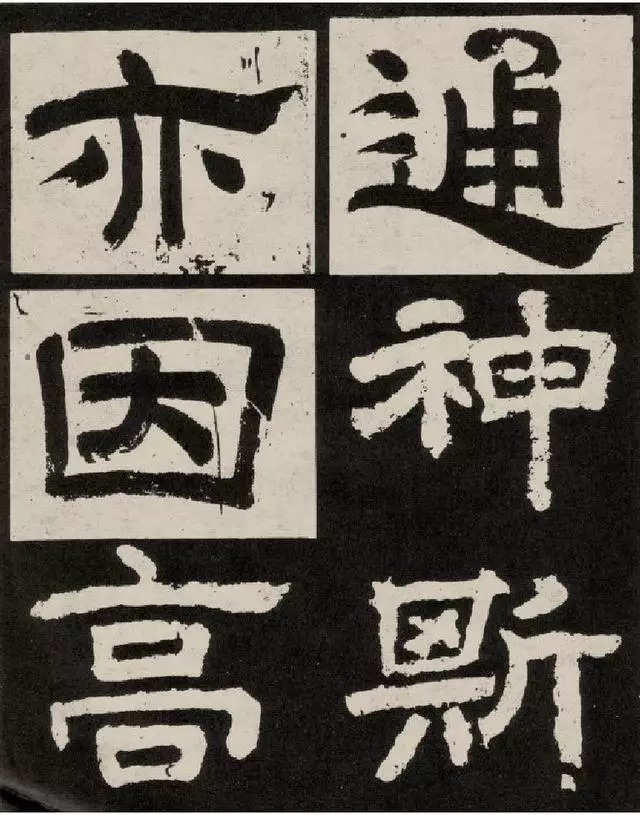 通神斯
亦因高